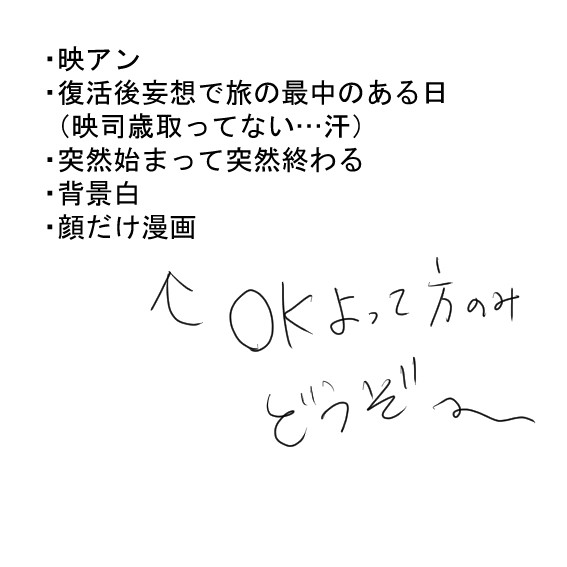 ・映アン
・復活後妄想で旅の最中のある日
（映司歳取ってない…汗）
・突然始まって突然終わる
・背景白
・顔だけ漫画
↑ OKよって方のみ
どうぞ〜